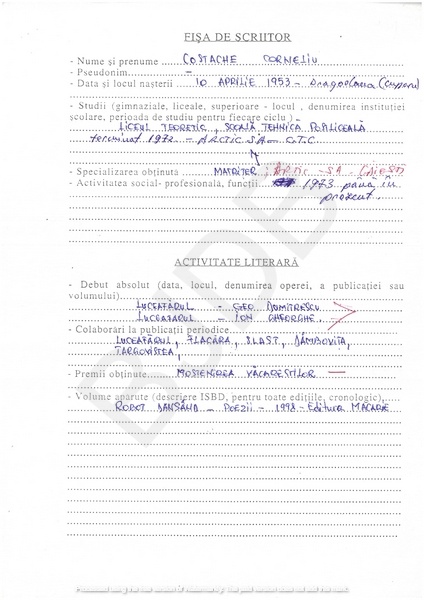 FIŞA DE SCRIITOR
- Nume şi prenume COSTACHE CORNELIU
- Pseudonim –
- Data şi locul naşterii 10 APRILIE 1953 – Dragodana
- Studii (gimnaziale, liceale, superioare - locul , denumirea instituţiei
şcolare, perioada de studiu pentru fiecare ciclu)
LICEUL TEORETIC, ŞCOALĂ TEHNICĂ POSTLICEALĂ
terminat 1972 – ARCTIC SA – G.T.C
- Specializarea obţinută MATRIŢER ARTIC – SA – GĂEŞTI
- Activitatea social- profesională, funcţii 1973 până în
prezent.
ACTIVITATE LITERARĂ
- Debut absolut (data, locul, denumirea operei, a publicaţiei sau
volumului)
LUCEAFĂRUL – GEO DUMITRESCU
LUCEAFĂRUL – ION GHEORGHE
- Colaborări la publicaţii periodice
LUCEAFĂRUL, FLACĂRA, SLAST, DÂMBOVIŢA,
TÂRGOVIŞTEA
- Premii obţinute MOŞTENIREA VĂCĂREŞTILOR –
- Volume aparute (descriere ISBD, pentru toate ediţiile, cronologic)
ROBOT DANSÂND – Poezii – 1998 – Editura MACARIE
BJDE